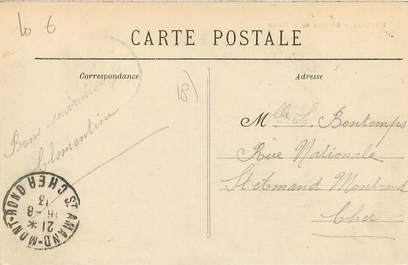 10 €
CARTE POSTALE
Correspondance
Adresse
18)
Bons souvenirs
Clementine
Mlle L. Bontemps
Rue Nationale
St Amand Montrond
Cher
ST AMAND-MONT-ROND
CHER
21 *
16 - 8
13